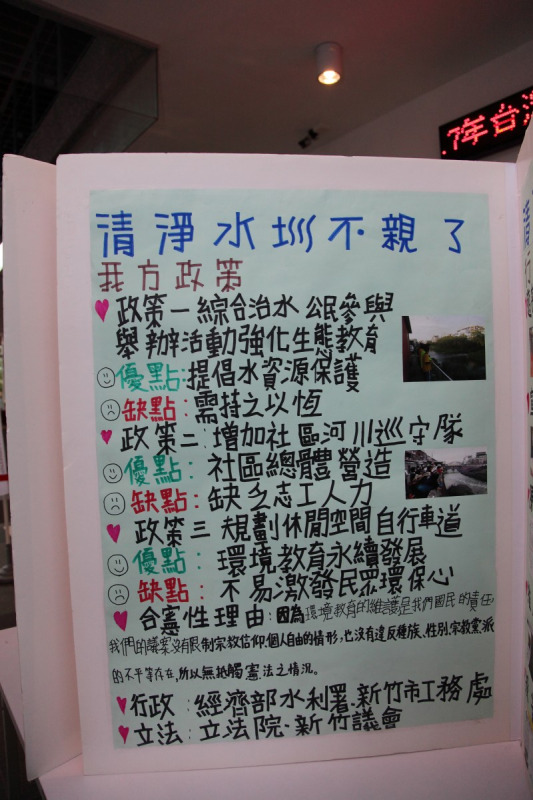 7年台灣
清淨水圳不親了
我方政策
政策一綜合治水 公民參與
舉辦活動強化生態教育
優點:提倡水資源保護
缺點: 需持之以恆
政策二: 增加社區河川巡守隊
優點: 社區總體營造
缺點: 缺乏志工人力
政策三 規劃休閒空間自行車道
優點: 環境教育永續發展
缺點: 不易激發民眾環保心
合憲性理由: 因為環境教育的維護是我們國民的責任
我們的議案沒有限制宗教信仰.個人自由的情形,也沒有違反種族、性別、宗教黨派
的不平等存在,所以無牴觸憲法之情況。
行政: 經濟部水利署、新竹市工務處
立法: 立法院、新竹議會